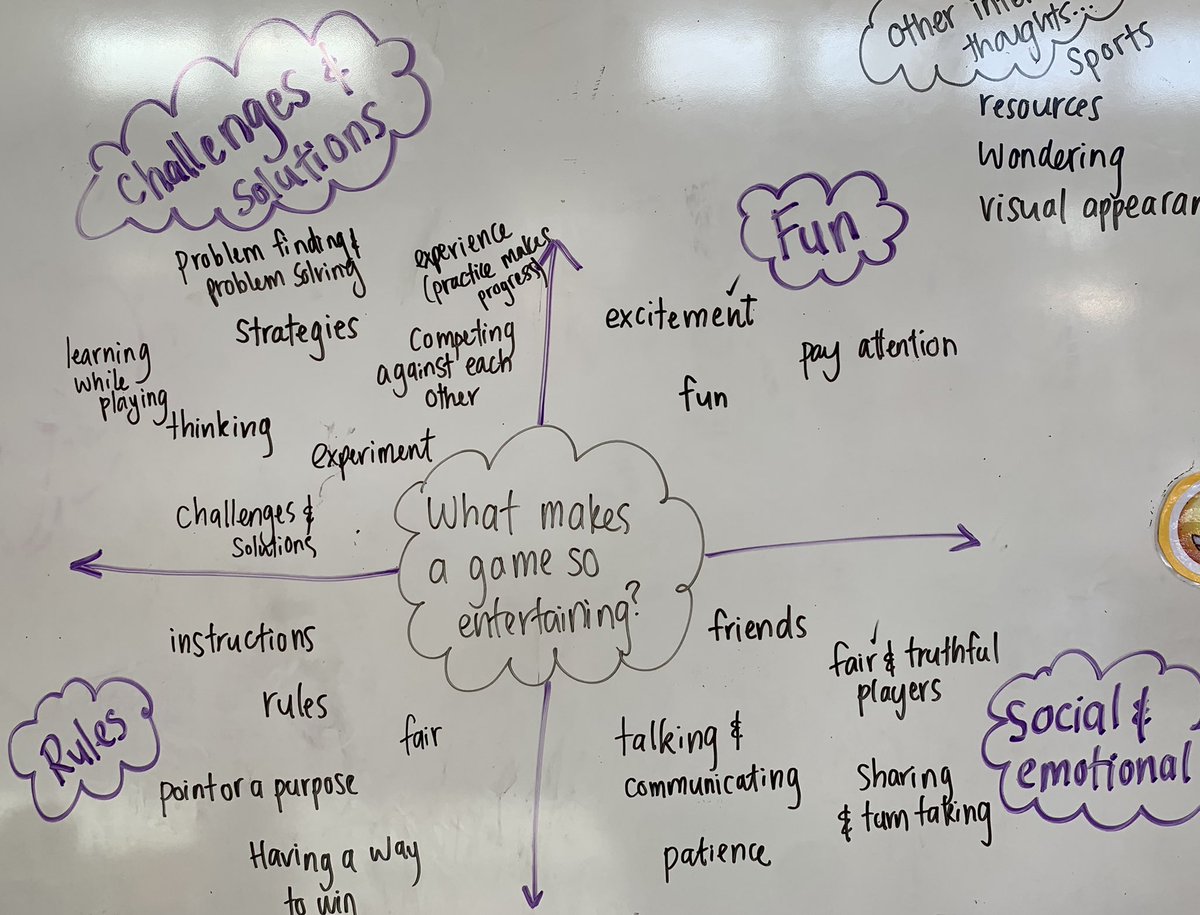 Challenges &
solutions
Problem finding &
problem solving
experience
(practice makes
progress)
strategies
Competing
against each
other
learning
while
playing
thinking
experiment
Challenges &
solutions
other
thoughts...
Sports
resources
Wondering
visual
Fun
excitement
pay attention
fun
What makes
a game so
entertaining?
instructions
rules
fair
Rules
point or a purpose
Having a way
to win
friends
fair & truthful
players
Social &
emotional
talking &
communicating
Sharing
& turn taking
patience